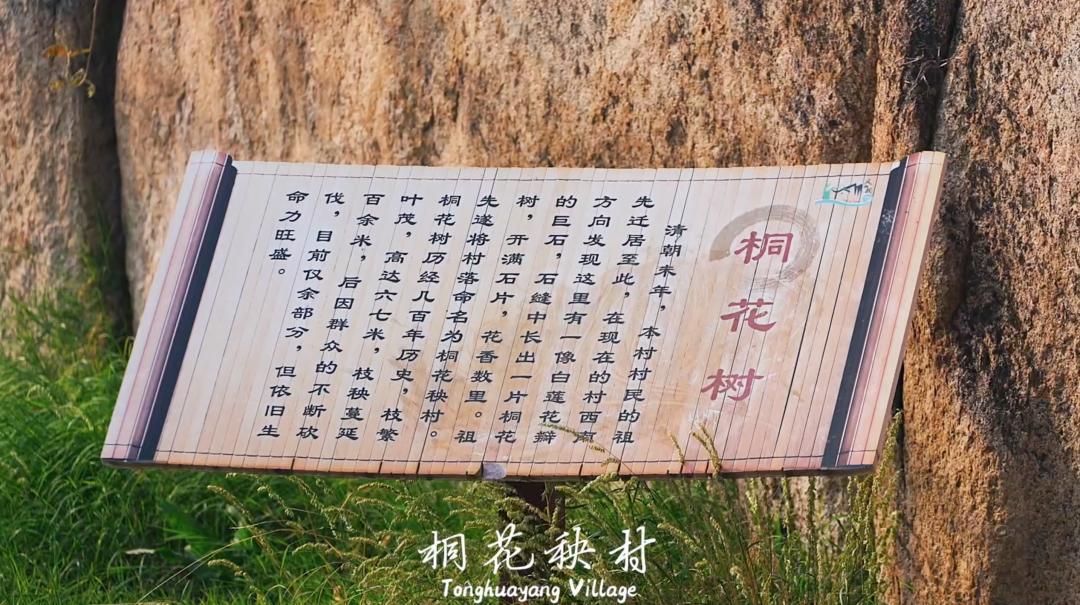 桐花树
清朝末年，本村村民的祖
先迁居至此，在现在的村西南
方向发现这里有一像白莲花瓣
的巨石，石缝中长出一片桐花
树，开满石片，花香数里。祖
先遂将村落命名为桐花秧村。
桐花树历经几百年历史，枝繁
叶茂，高达六七米，枝秧蔓延
百余米，后因群众的不断砍
伐，目前仅余部分，但依旧生
命力旺盛。
桐花秧村
Tonghuayang Village